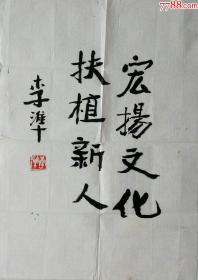 宏揚文化
扶植新人
李準
7788.com